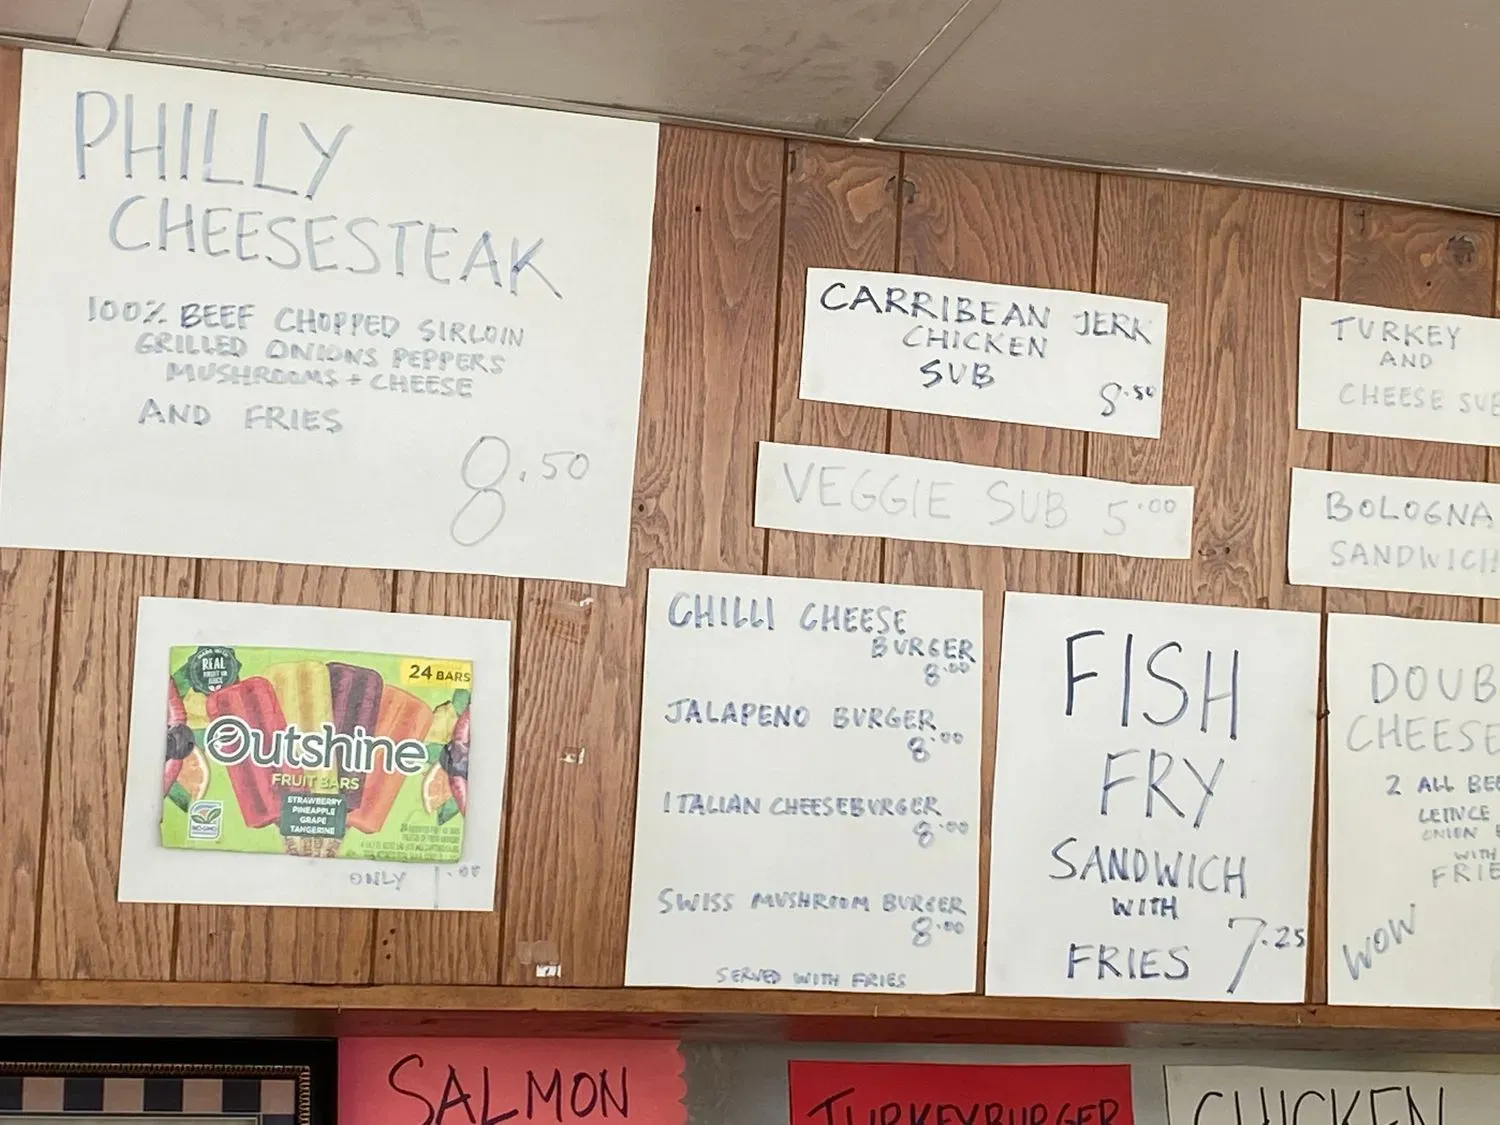 PHILLY
CHEESESTEAK
100% BEEF CHOPPED SIRLOIN
GRILLED ONIONS PEPPERS
MUSHROOMS + CHEESE
AND FRIES
8.50
CARRIBEAN JERK
CHICKEN
SUB
8.50
TURKEY
AND
CHEESE SUB
VEGGIE SUB 5.00
BOLOGNA
SANDWICH
MADE WITH
REAL
FRUIT OR
JUICE
24 BARS
Outshine
FRUIT BARS
STRAWBERRY
PINEAPPLE
GRAPE
TANGERINE
NON-GMO
ONLY 1.00
CHILLI CHEESE
BURGER
8.00
JALAPENO BURGER
8.00
ITALIAN CHEESEBURGER
8.00
SWISS MUSHROOM BURGER
8.00
SERVED WITH FRIES
FISH
FRY
SANDWICH
WITH
FRIES 7.25
DOUB
CHEESE
2 ALL BEE
LETTUCE
ONION
WITH
FRIE
WOW
SALMON
TURKEYBURGER
CHICKEN